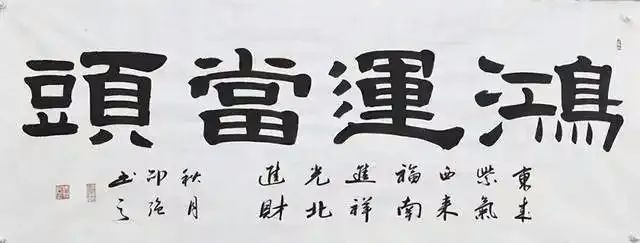 鴻運當頭
東来
紫氣
西来
福南
進祥
光北
進財
秋月
书之